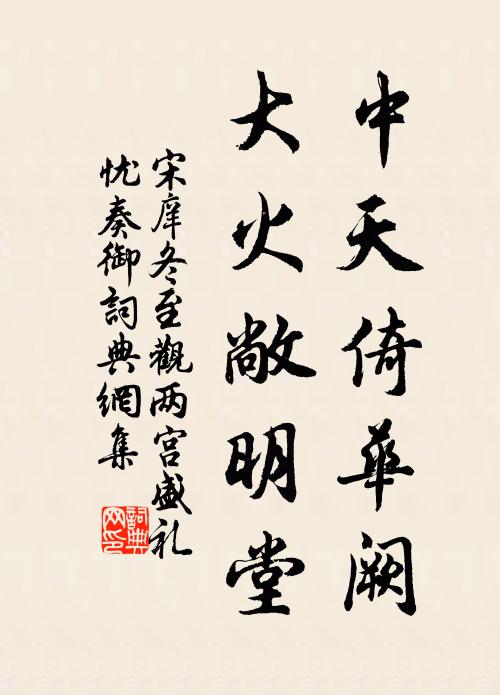 中天倚華阙
大火敞明堂
宋庠冬至觀两宫盛礼
忧奏御詞典網集
詞典網印